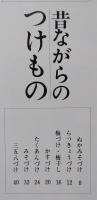 昔ながらの
つけもの
ぬかみそづけ 8
らっきょうづけ 12
梅づけ・梅干し 16
かすづけ 20
たくあんづけ 24
みそづけ 33
三五八づけ 40